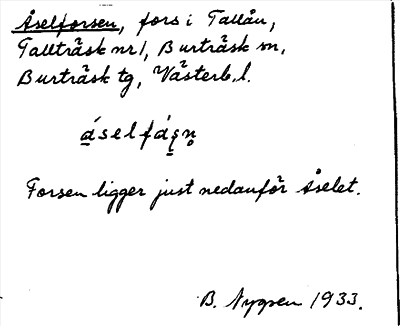 Åselforsen, fors i Tallån,
Tallträsk nr 1, Burträsk sn,
Burträsk tg, Västerb. l.
Forsen ligger just nedanför Åselet.
B. Nygren 1933.